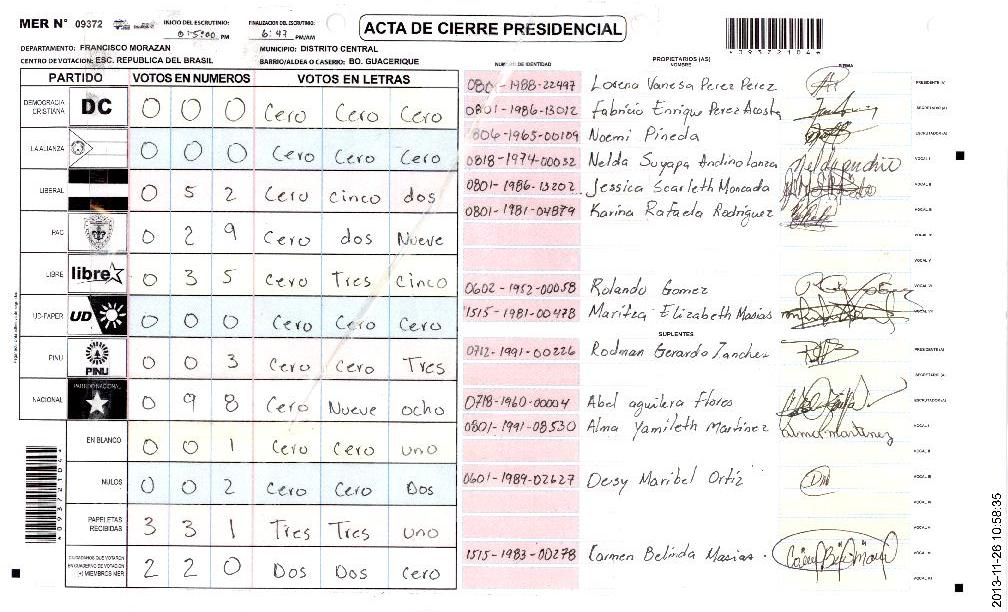 MER N° 09372 INICIO DEL ESCRUTINIO: 05:00 PM FINALIZACION DEL ESCRUTINIO: 6:47 PM/AM
ACTA DE CIERRE PRESIDENCIAL
*09372104*
DEPARTAMENTO: FRANCISCO MORAZAN MUNICIPIO: DISTRITO CENTRAL
CENTRO DE VOTACION: ESC. REPUBLICA DEL BRASIL BARRIO/ALDEA O CASERIO: BO. GUACERIQUE
PARTIDO VOTOS EN NUMEROS VOTOS EN LETRAS
DEMOCRACIA CRISTIANA DC 0 0 0 Cero Cero Cero
LA ALIANZA 0 0 0 Cero Cero Cero
LIBERAL 0 5 2 Cero cinco dos
PAC 0 2 9 Cero dos Nueve
LIBRE libre 0 3 5 Cero Tres Cinco
UD-FAPER UD 0 0 0 Cero Cero Cero
PINU PINU 0 0 3 Cero Cero Tres
NACIONAL PARTIDO NACIONAL 0 9 8 Cero Nueve ocho
EN BLANCO 0 0 1 Cero Cero uno
NULOS 0 0 2 Cero Cero Dos
PAPELETAS RECIBIDAS 3 3 1 Tres Tres uno
CIUDADANOS QUE VOTARON EN CUADERNO DE VOTACION (+) MIEMBROS MER 2 2 0 Dos Dos Cero
*09372104*
NUMERO DE IDENTIDAD PROPIETARIOS (AS) NOMBRE FIRMA
0801-1988-22497 Lorena Vanesa Perez Perez PRESIDENTE (A)
0801-1986-13012 Fabricio Enrique Perez Acosta SECRETARIO (A)
0806-1965-00109 Noemi Pineda ESCRUTADOR (A)
0818-1974-00032 Nelda Suyapa Andino Lanza VOCAL I
0801-1986-13202 Jessica Scarleth Moncada VOCAL II
0801-1981-04879 Karina Rafaela Rodriguez VOCAL III
VOCAL IV
VOCAL V
0602-1952-00058 Rolando Gomez VOCAL VI
1515-1981-00478 Maritza Elizabeth Masias VOCAL VII
SUPLENTES
0712-1991-00226 Rodman Gerardo Zanchez PRESIDENTE (A)
SECRETARIO (A)
0718-1960-00004 Abel aguilera Flores ESCRUTADOR (A)
0801-1991-08530 Alma Yamileth Martinez VOCAL I
VOCAL II
0601-1989-02627 Deisy Maribel Ortiz VOCAL III
VOCAL IV
VOCAL V
1515-1983-00278 Karmen Belinda Masias VOCAL VI
VOCAL VII
2013-11-26 10:58:35